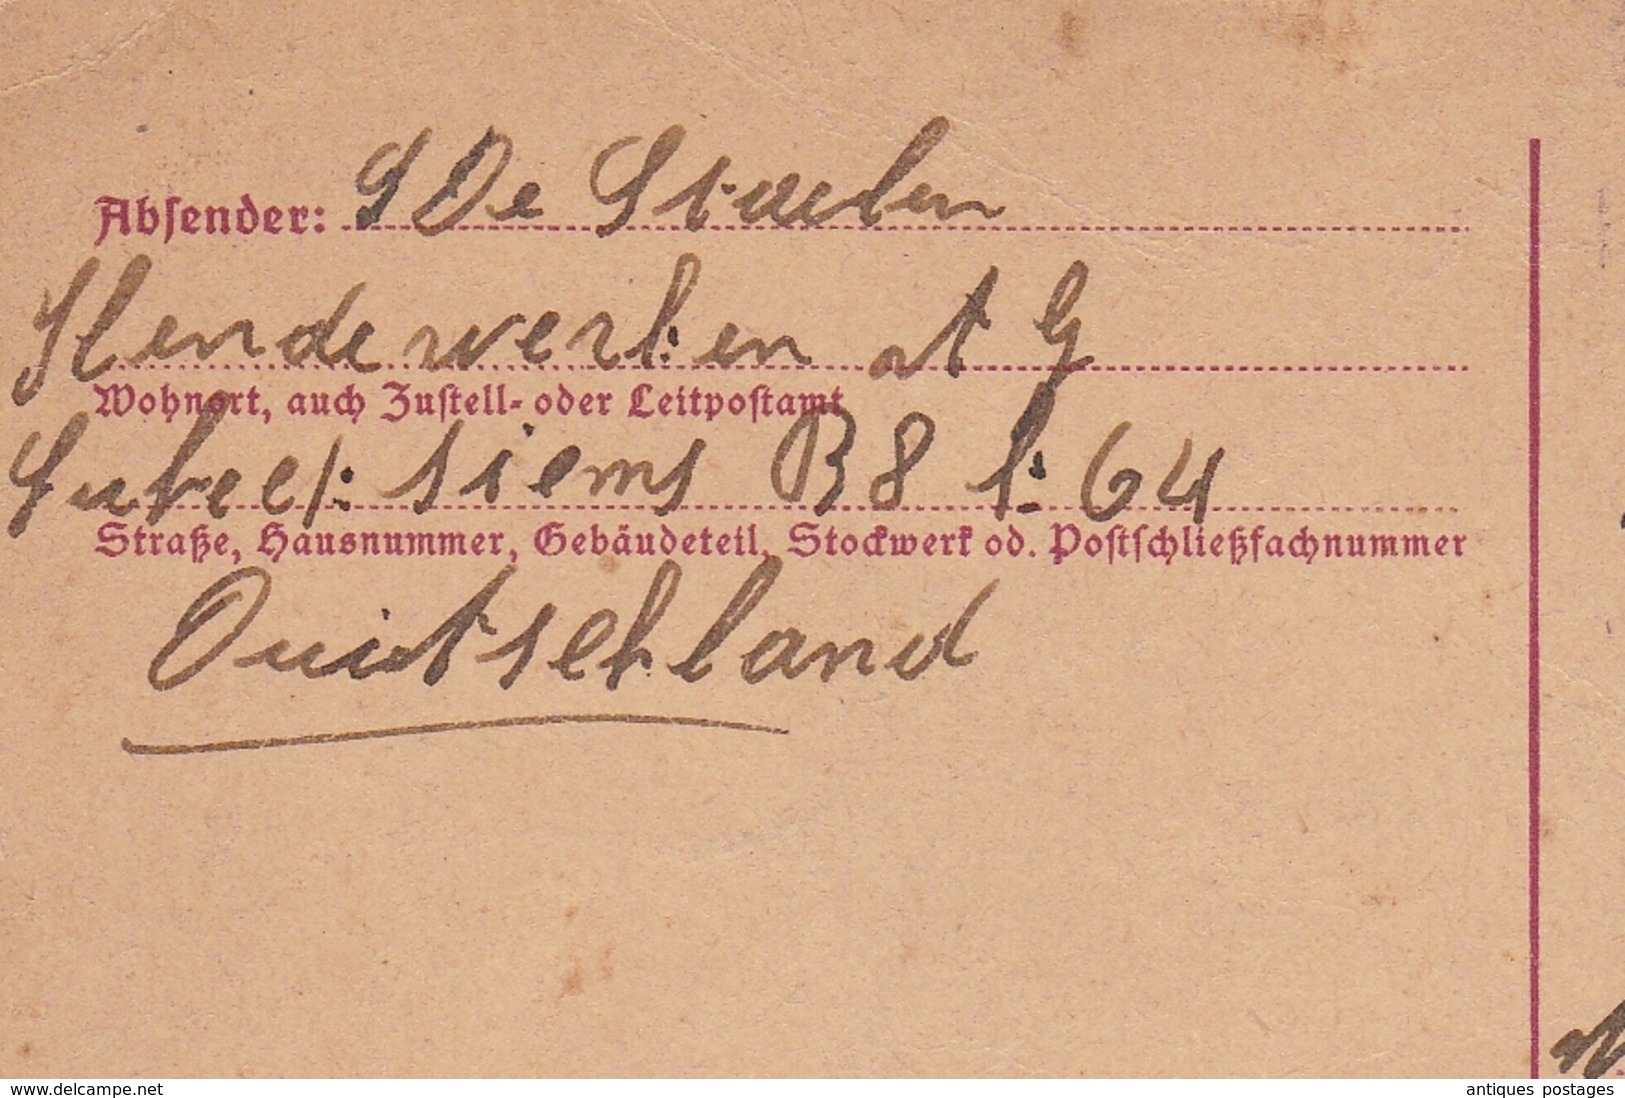 Absender: S De Staelen
Slendewerken A G
Wohnort, auch Zustell- oder Leitpostamt
Lubeck: siems B 8 l: 64
Straße, Hausnummer, Gebäudeteil, Stockwerk od. Postschließfachnummer
Duitschland
www.delcampe.net
antiques_postages